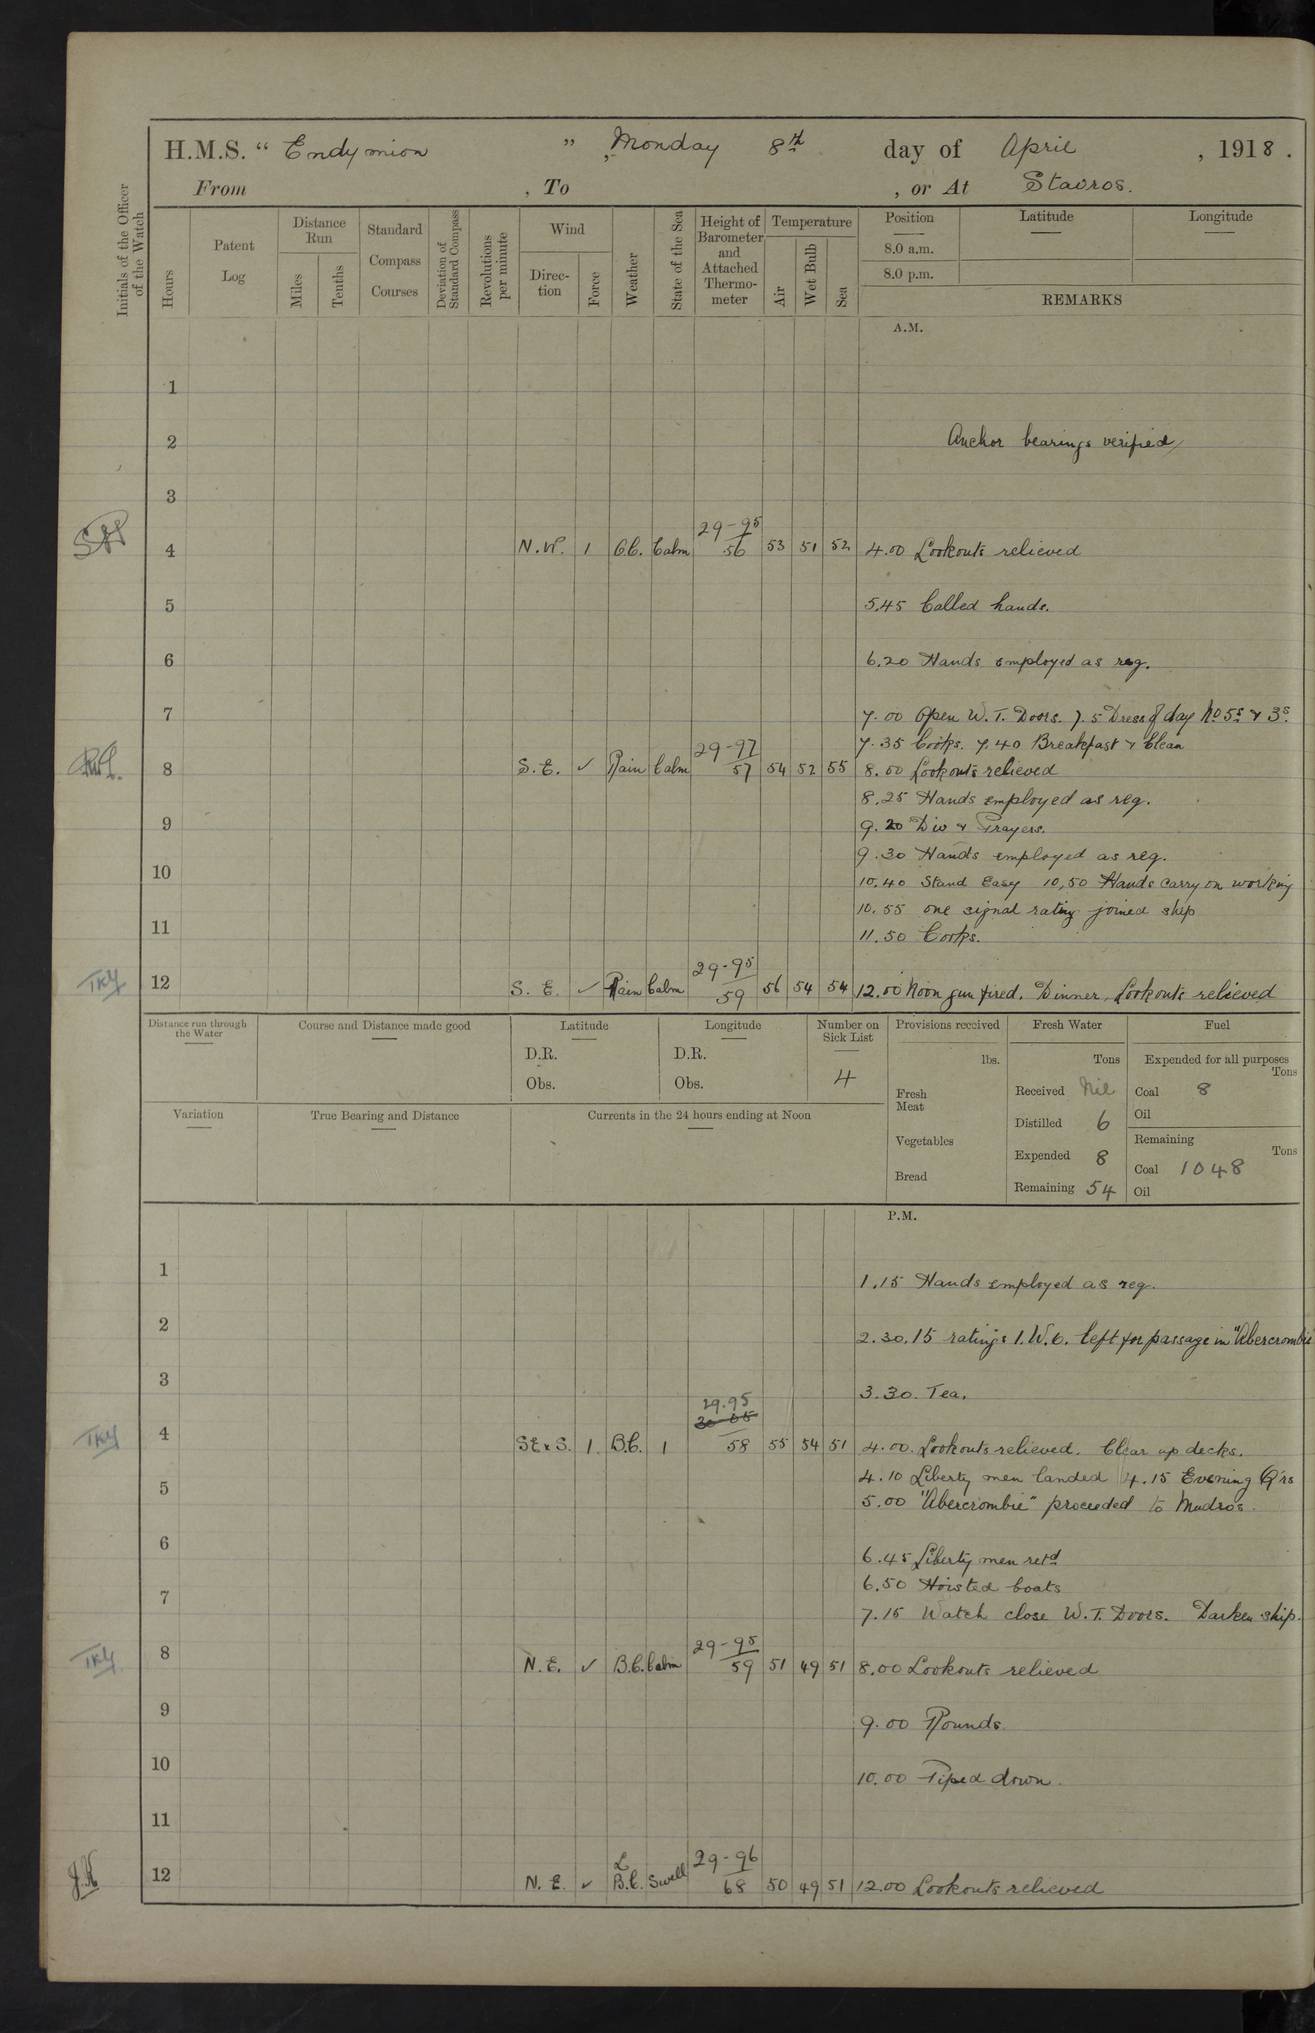 H.M.S. “ Endymion ” , Monday 8th day of April , 1918 .
From , To , or At Stavros.
Initials of the Officer of the Watch
Hours
Patent Log
Distance Run
Miles
Tenths
Standard Compass Courses
Deviation of Standard Compass
Revolutions per minute
Wind
Direc-tion
Force
Weather
State of the Sea
Height of Barometer and Attached Thermo-meter
Temperature
Air
Wet Bulb
Sea
Position
8.0 a.m.
8.0 p.m.
Latitude
Longitude
REMARKS
A.M.
1
2 Anchor bearings verified
3
4 N.W. 1 Calm 29-95 56 53 51 52 4.00 Lookouts relieved
5 5.45 Called hands.
6 6.20 Hands employed as reg.
7 7.00 Open W.T. Doors. 7.5 Dress of day No 5s & 3s.
7.35 Cooks. 7.40 Breakfast & Clean
8 S.E. ✓ Rain Calm 29-97 57 54 52 55 8.00 Lookouts relieved
8.25 Hands employed as reg.
9 9.20 Div & Prayers.
9.30 Hands employed as reg.
10 10.40 Stand Easy 10.50 Hands carry on working
10.55 one signal rating joined ship
11 11.50 Cooks.
TKY 12 S.E. ✓ Rain Calm 29-95 59 56 54 54 12.00 Noon gun fired. Dinner. Lookouts relieved
Distance run through the Water
Course and Distance made good
Latitude
D.R.
Obs.
Longitude
D.R.
Obs.
Number on Sick List
4
Provisions received
lbs.
Fresh Meat
Vegetables
Bread
Fresh Water
Tons
Received Nil
Distilled 6
Expended 8
Remaining 54
Fuel
Expended for all purposes
Tons
Coal 8
Oil
Remaining
Tons
Coal 1048
Oil
Variation
True Bearing and Distance
Currents in the 24 hours ending at Noon
P.M.
1 1.15 Hands employed as reg.
2 2.30. 15 ratings left for passage in "Abercrombie
3 3.30 Tea.
29.95
TKY 4 SE x S. 1 B.C. 1 30-05 58 55 54 51 4.00. Lookouts relieved. Clear up decks.
4.10 Liberty men landed 4.15 Evening Q'rs
5 5.00 "Abercrombie" proceeded to Mudros.
6 6.45 Liberty men retd
6.50 Hoisted boats
7 7.15 Watch close W.T. Doors. Darken ship.
TKY 8 N.E. ✓ B.C. Calm 29-95 59 51 49 51 8.00 Lookouts relieved
9 9.00 Rounds
10 10.00 Piped down.
11
12 N.E. ✓ B.C. Swell 29-96 68 50 49 51 12.00 Lookouts relieved